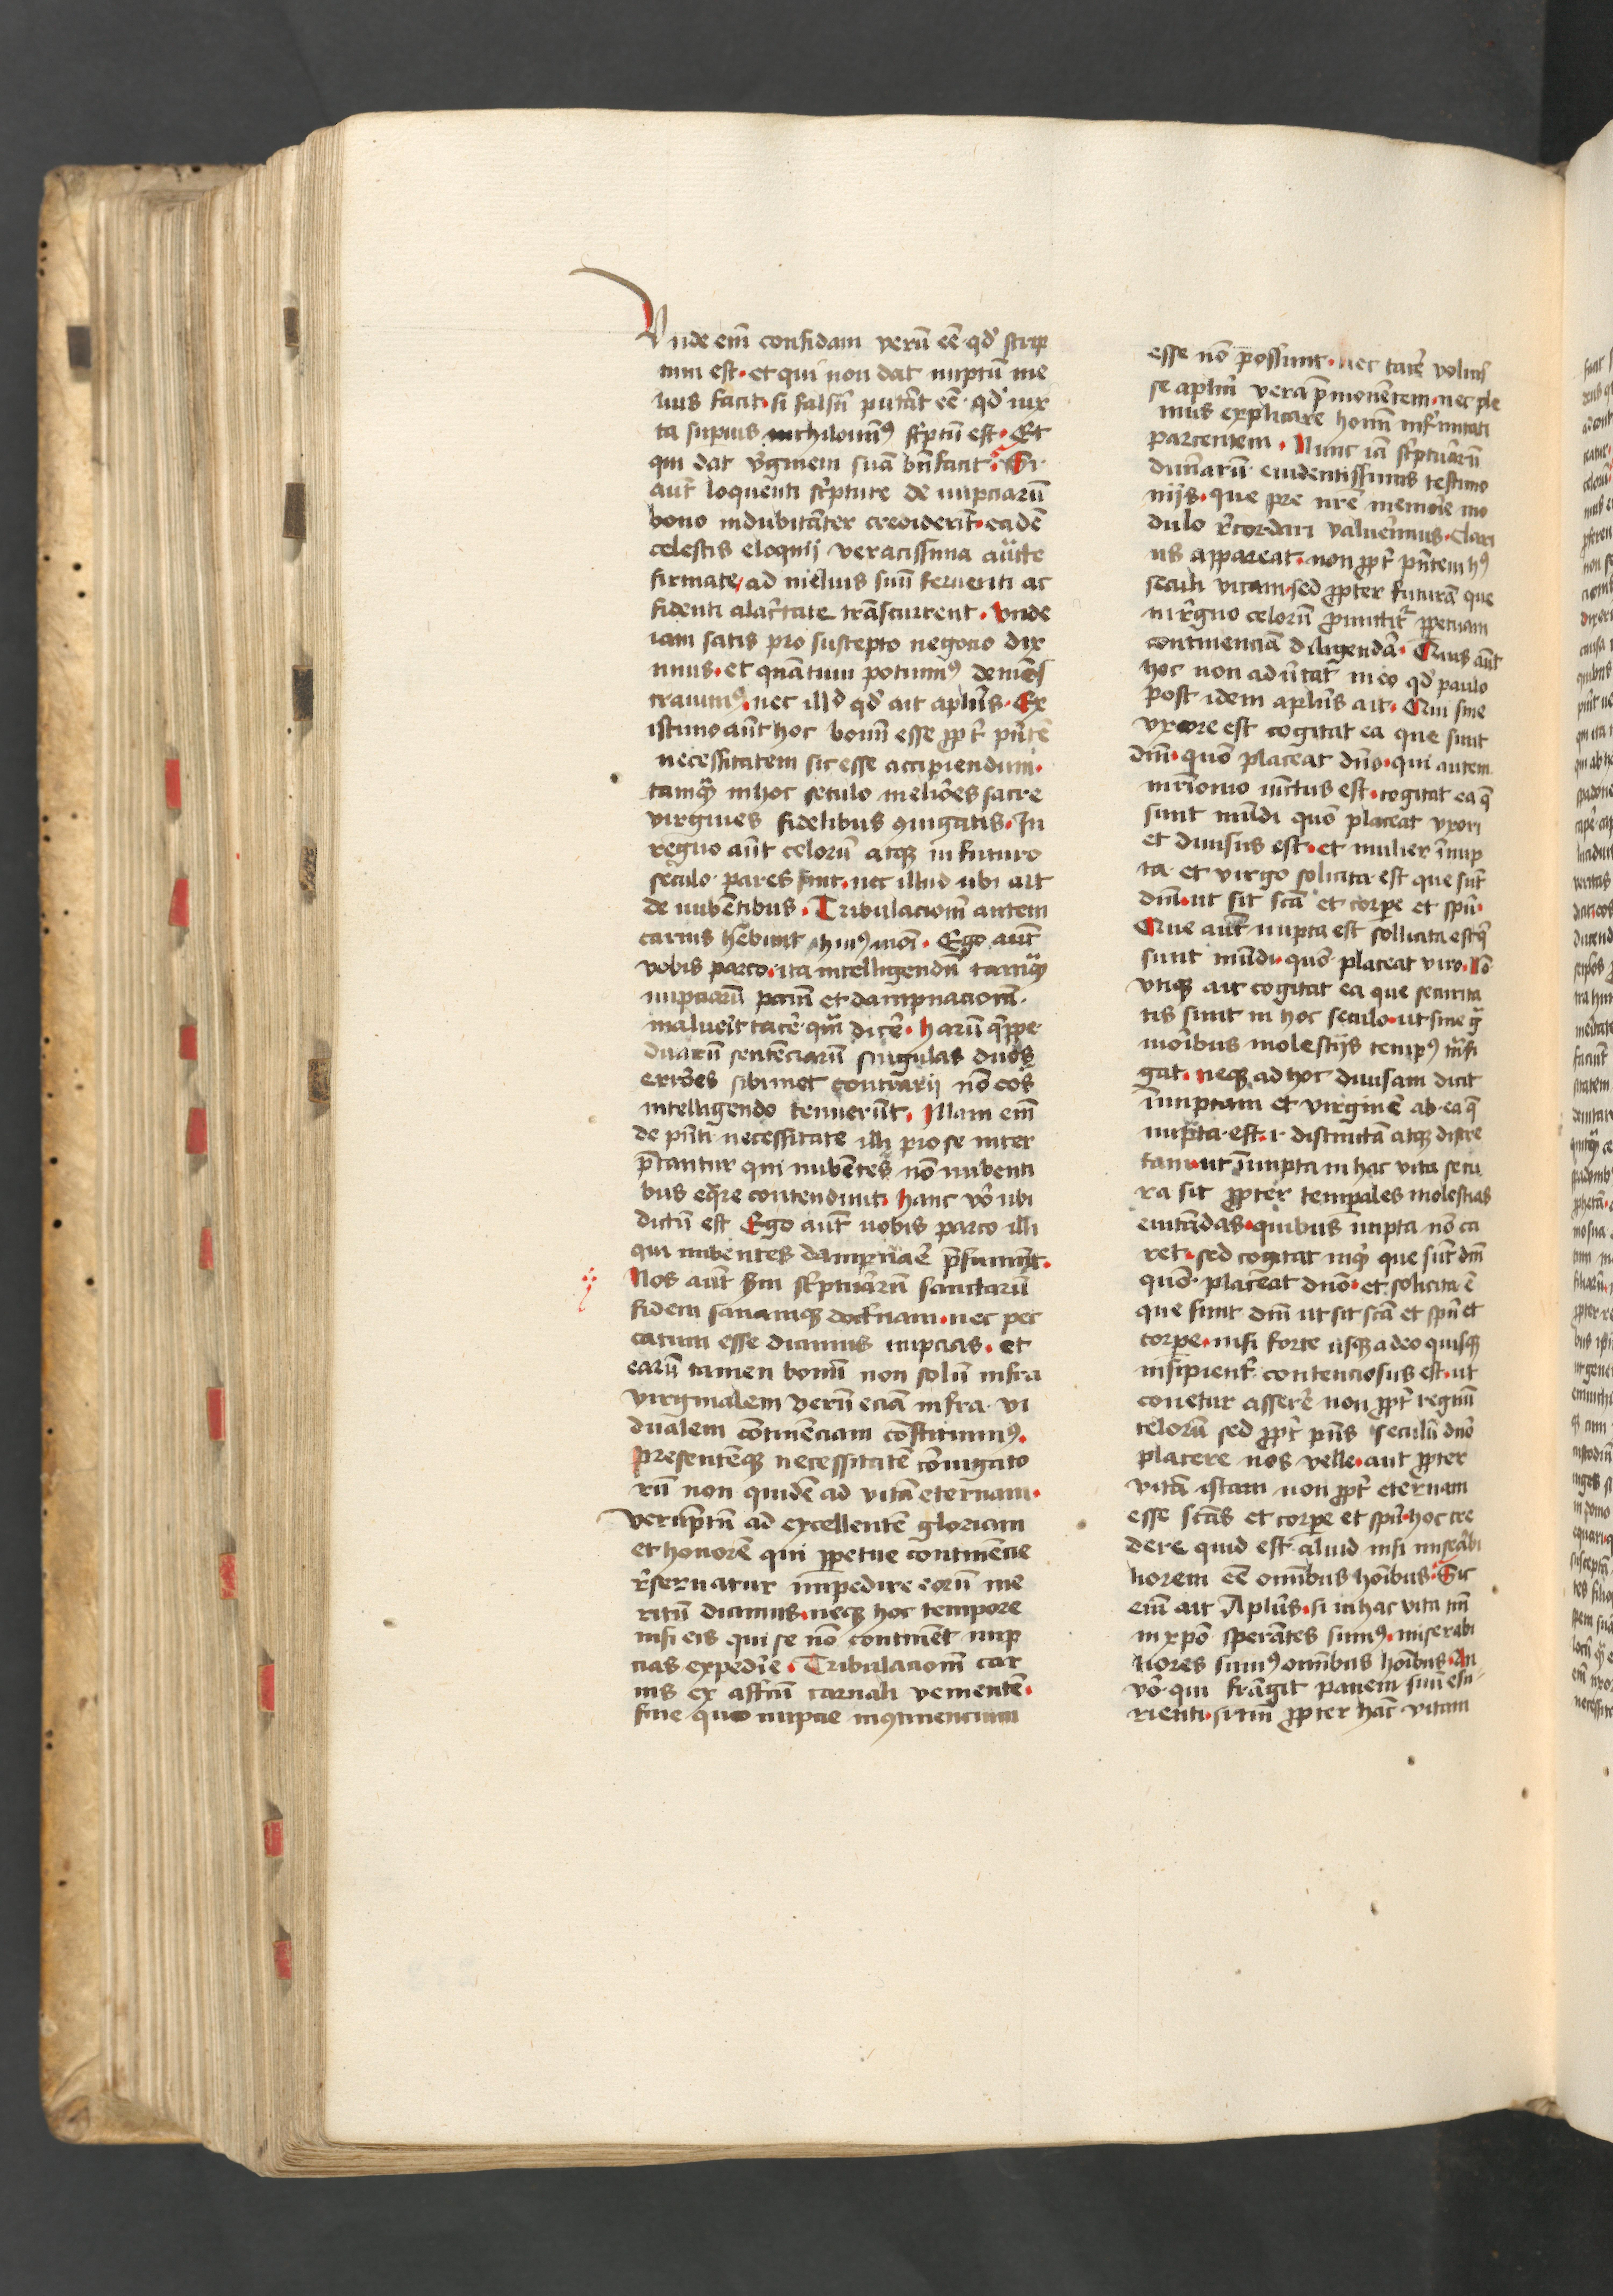 Vnde em̄ confidam verū eē qd̕ scrip
tum est · et qui non dat nuptū me
lius facit · si falsū putāt eē · qd̕ iux
ta supius nichilominꝰ sc̕ptū est · Et
qui dat v̕ginem suā bn̄ facit · Si
aut̄ loquenti sc̕pture de nupciarū
bono indubitāter crediderīt · eadē
celestis eloquij veracissima auc̄te
firmate / ad melius suū feruenti ac
fidenti alac̕tate trāscurrent · Vnde
iam satis pro suscepto negocio dix
imus · et quātum potuimꝰ demōs
trauimꝰ · nec illd̕ qd̕ ait apl̄us · Ex
istimo aūt hoc bonū esse ꝓpt̕ pn̄tē
necessitatem sic esse accipiendum ·
tamqᷓ in hoc seculo meliōes sacre
virgines fidelibus ꝯiugatis · In
regno aūt celorū atqꝫ in futuro
seculo · pares sint · nec illud ubi ait
de nubētibus · Tribulacionē autem
carnis hēbunt hiꝰmōi · Ego aūt
vobis parco · ita intelligendū tamqᷓ
nupciarū pctm̄ et dampnacionē ·
maluerit tacē · qᷓ dicē · Harū q̕ppe
duarū sentēciarū singulas duos
errōes sibimet contrarij nō eos
intelligendo tenuerūt · Illam em̄
de pn̄ti necessitate illi pro se inter
p̄tantur qui nubētes nō nubenti
bus eq̄re contendunt · hanc vō ubi
dictū est Ego aūt uobis parco illi
qui nubentes dampnaē p̄sumūt ·
Nos aūt sm̄ sc̕pturarū sanctarū
fidem sanamqꝫ doctrinam · nec pec
catum esse dicimus nupcias · et
earū tamen bonū non solū infra
virginalem verū eciā infra · vi
dualem cōtinēciam cōstituimꝰ ·
presentēqꝫ necessitatē cōiugato
rū non quidē ad vitā eternam ·
verūptn̄ ad excellentē gloriam
et honorē qui ꝑpetue continēcie
r̕seruatur impedire eorū me
ritū dicimus · neqꝫ hoc tempore
nisi eis qui se nō continēt nup
cias expedīe · Tribulacionē car
nis ex affcū carnali venientē ·
sine quo nupcie inꝯtinencium
esse nō possunt · nec tacē voluis
se aplm̄ vera p̄monentem · nec ple
nius explicare homī infirmitati
parcentem · Nunc iā sc̕pturarū
diuinarū euidentissimis testimo
nijs · que pre nr̄e memoīe mo
dulo r̕cordari valuerimus · Clari
us appareat · non ꝓpt̕ pn̄tem hꝰ
seculi vitam · sed ꝓpter futurā que
in r̕gno celorū ꝓmittit̕ ꝑpetuam
continenciā diligendā · Quis aūt
hoc non aduertat in eo qd̕ paulo
post idem aplūs ait · Qui sine
vxore est cogitat ea que sunt
dm̄ · quō placeat dn̄o · qui autem
mr̄imonio iūctus est · cogitat ea q̄
sunt mūdi quō placeat vxori
et diuisus est · et mulier īnup
ta · et virgo solicita est que sūt
dm̄ · ut sit scā et corpe et spū ·
Que aūt nupta est sollicita est q̄
sunt mūdi · quō placeat viro · Nō
vtiqꝫ ait cogitat ea que securita
tis sunt in hoc seculo · ut sine gᷓ
mōibus molestijs tempꝰ trāsi
gat · neqꝫ ad hoc diuisam dicit
īnuptam et virginē ab · ea q̄
nupta · est · i · distinctā atqꝫ discre
tam · ut īnupta in hac vita secu
ra sit ꝓpter temꝑales molestias
euitādas · quibus nupta nō ca
ret · sed cogitat inqᷓ que sūt dm̄
quō · placeat dn̄o · et solicita ē
que sunt dm̄ ut sit scā et spū et
corpe · nisi forte usqꝫ adeo quisqꝫ
insipient̕ contenciosus est · ut
conetur asserē non ꝓpt̕ regnū
celorū sed ꝓpt̕ pn̄s seculū dn̄o
placere nos velle · aut ꝓpter
vitā istam non ꝓpt̕ eternam
esse scās et corpe et spū · hoc cre
dere quid est · aliud nisi miserabi
liorem eē omībus hoībus · Sic
em̄ ait Aplūs · si in hac vita tm̄
in xpō sperātes sumꝰ · miserabi
liores sumꝰ omībus hoībus · An
vō · qui frāgit panem suū esu
rienti · si tm̄ ꝓpter hāc vitam